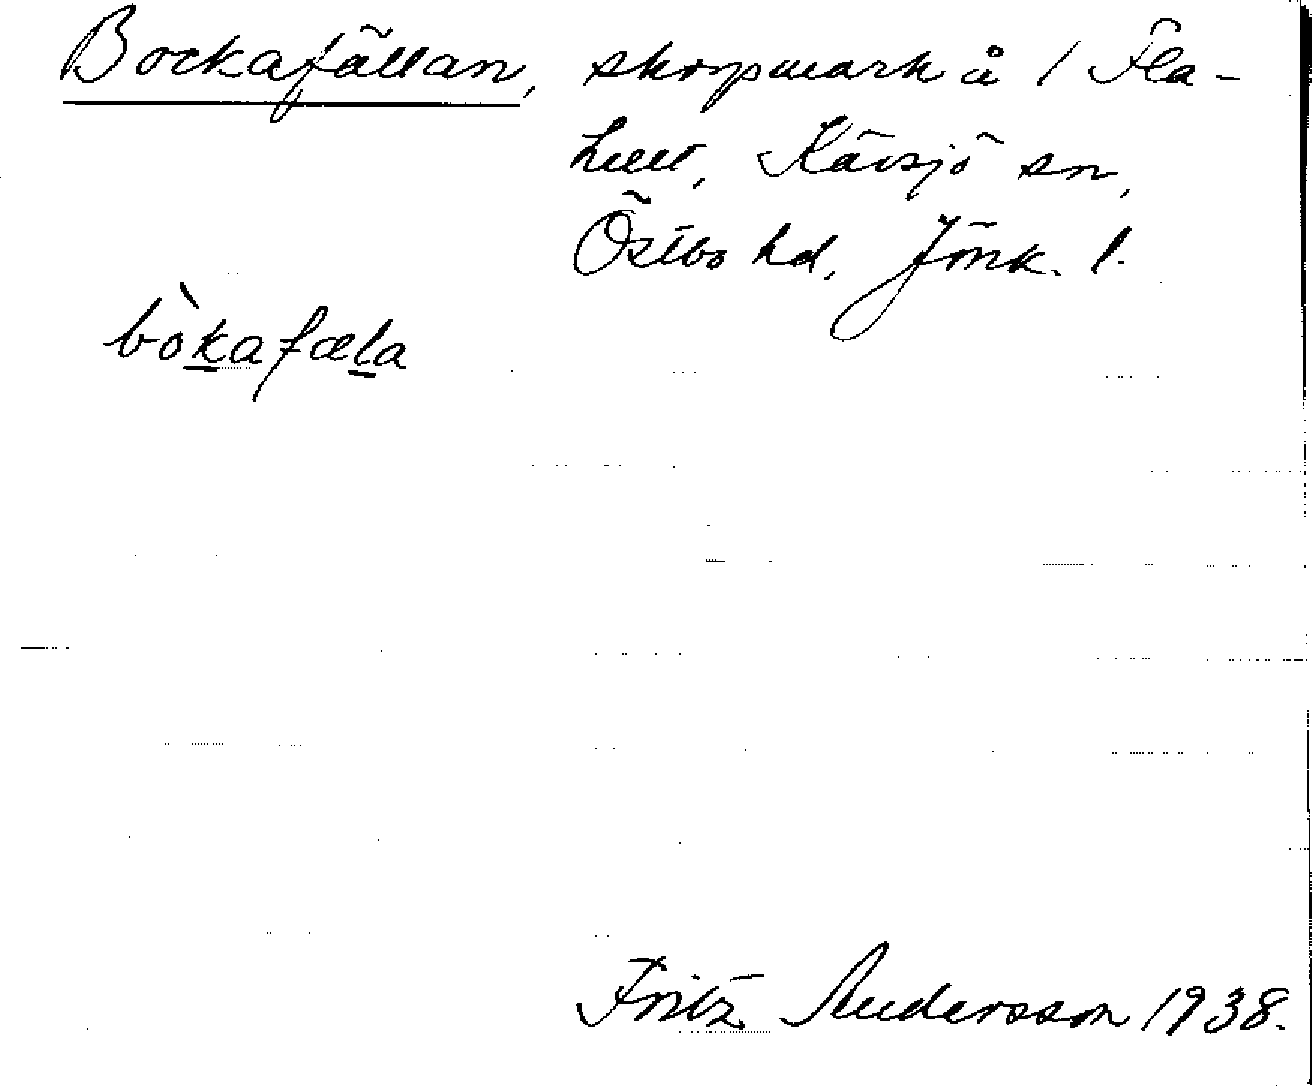 Bockafällan, skogsmark å / Fla-
hult, Kävsjö sn,
Östbo hd, Jönk. l.
bòkafæla
Fritz Andersson 1938.